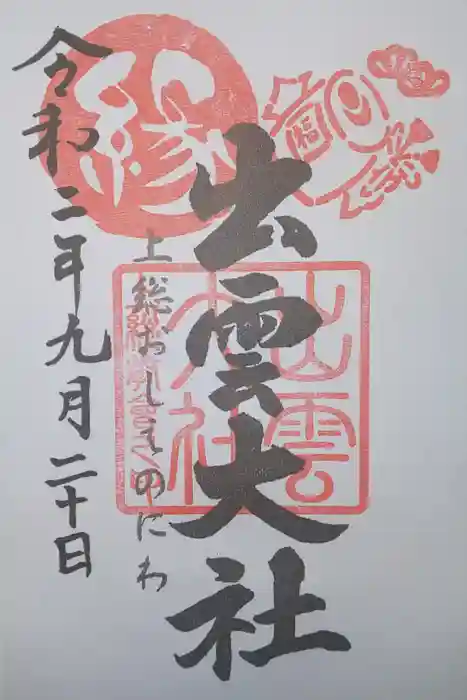 出雲大社
上総おしえのにわ
令和二年九月二十日
縁
福
出雲
大社